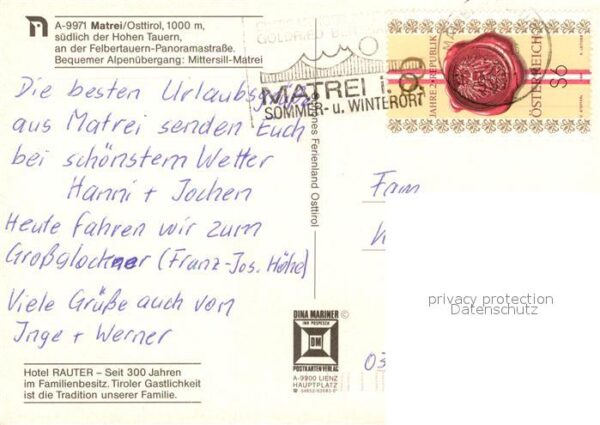 A-9971 Matrei/Osttirol, 1000 m,
südlich der Hohen Tauern,
an der Felbertauern-Panoramastraße.
Bequemer Alpenübergang: Mittersill-Matrei
Die besten Urlaubsgrüße
aus Matrei senden Euch
bei schönstem Wetter
Hanni + Jochen
Heute fahren wir zum
Großglockner (Franz-Jos. Höhe)
Viele Grüße auch von
Inge + Werner
Hotel RAUTER – Seit 300 Jahren
im Familienbesitz. Tiroler Gastlichkeit
ist die Tradition unserer Familie.
MATREI i. O.
SOMMER- u. WINTERORT
Ferienland Osttirol
JAHRE 2. REPUBLIK
ÖSTERREICH S6
Fam
DINA MARINER ©
DM
POSTKARTEN VERLAG
A-9900 LIENZ
HAUPTPLATZ
03
privacy protection
Datenschutz